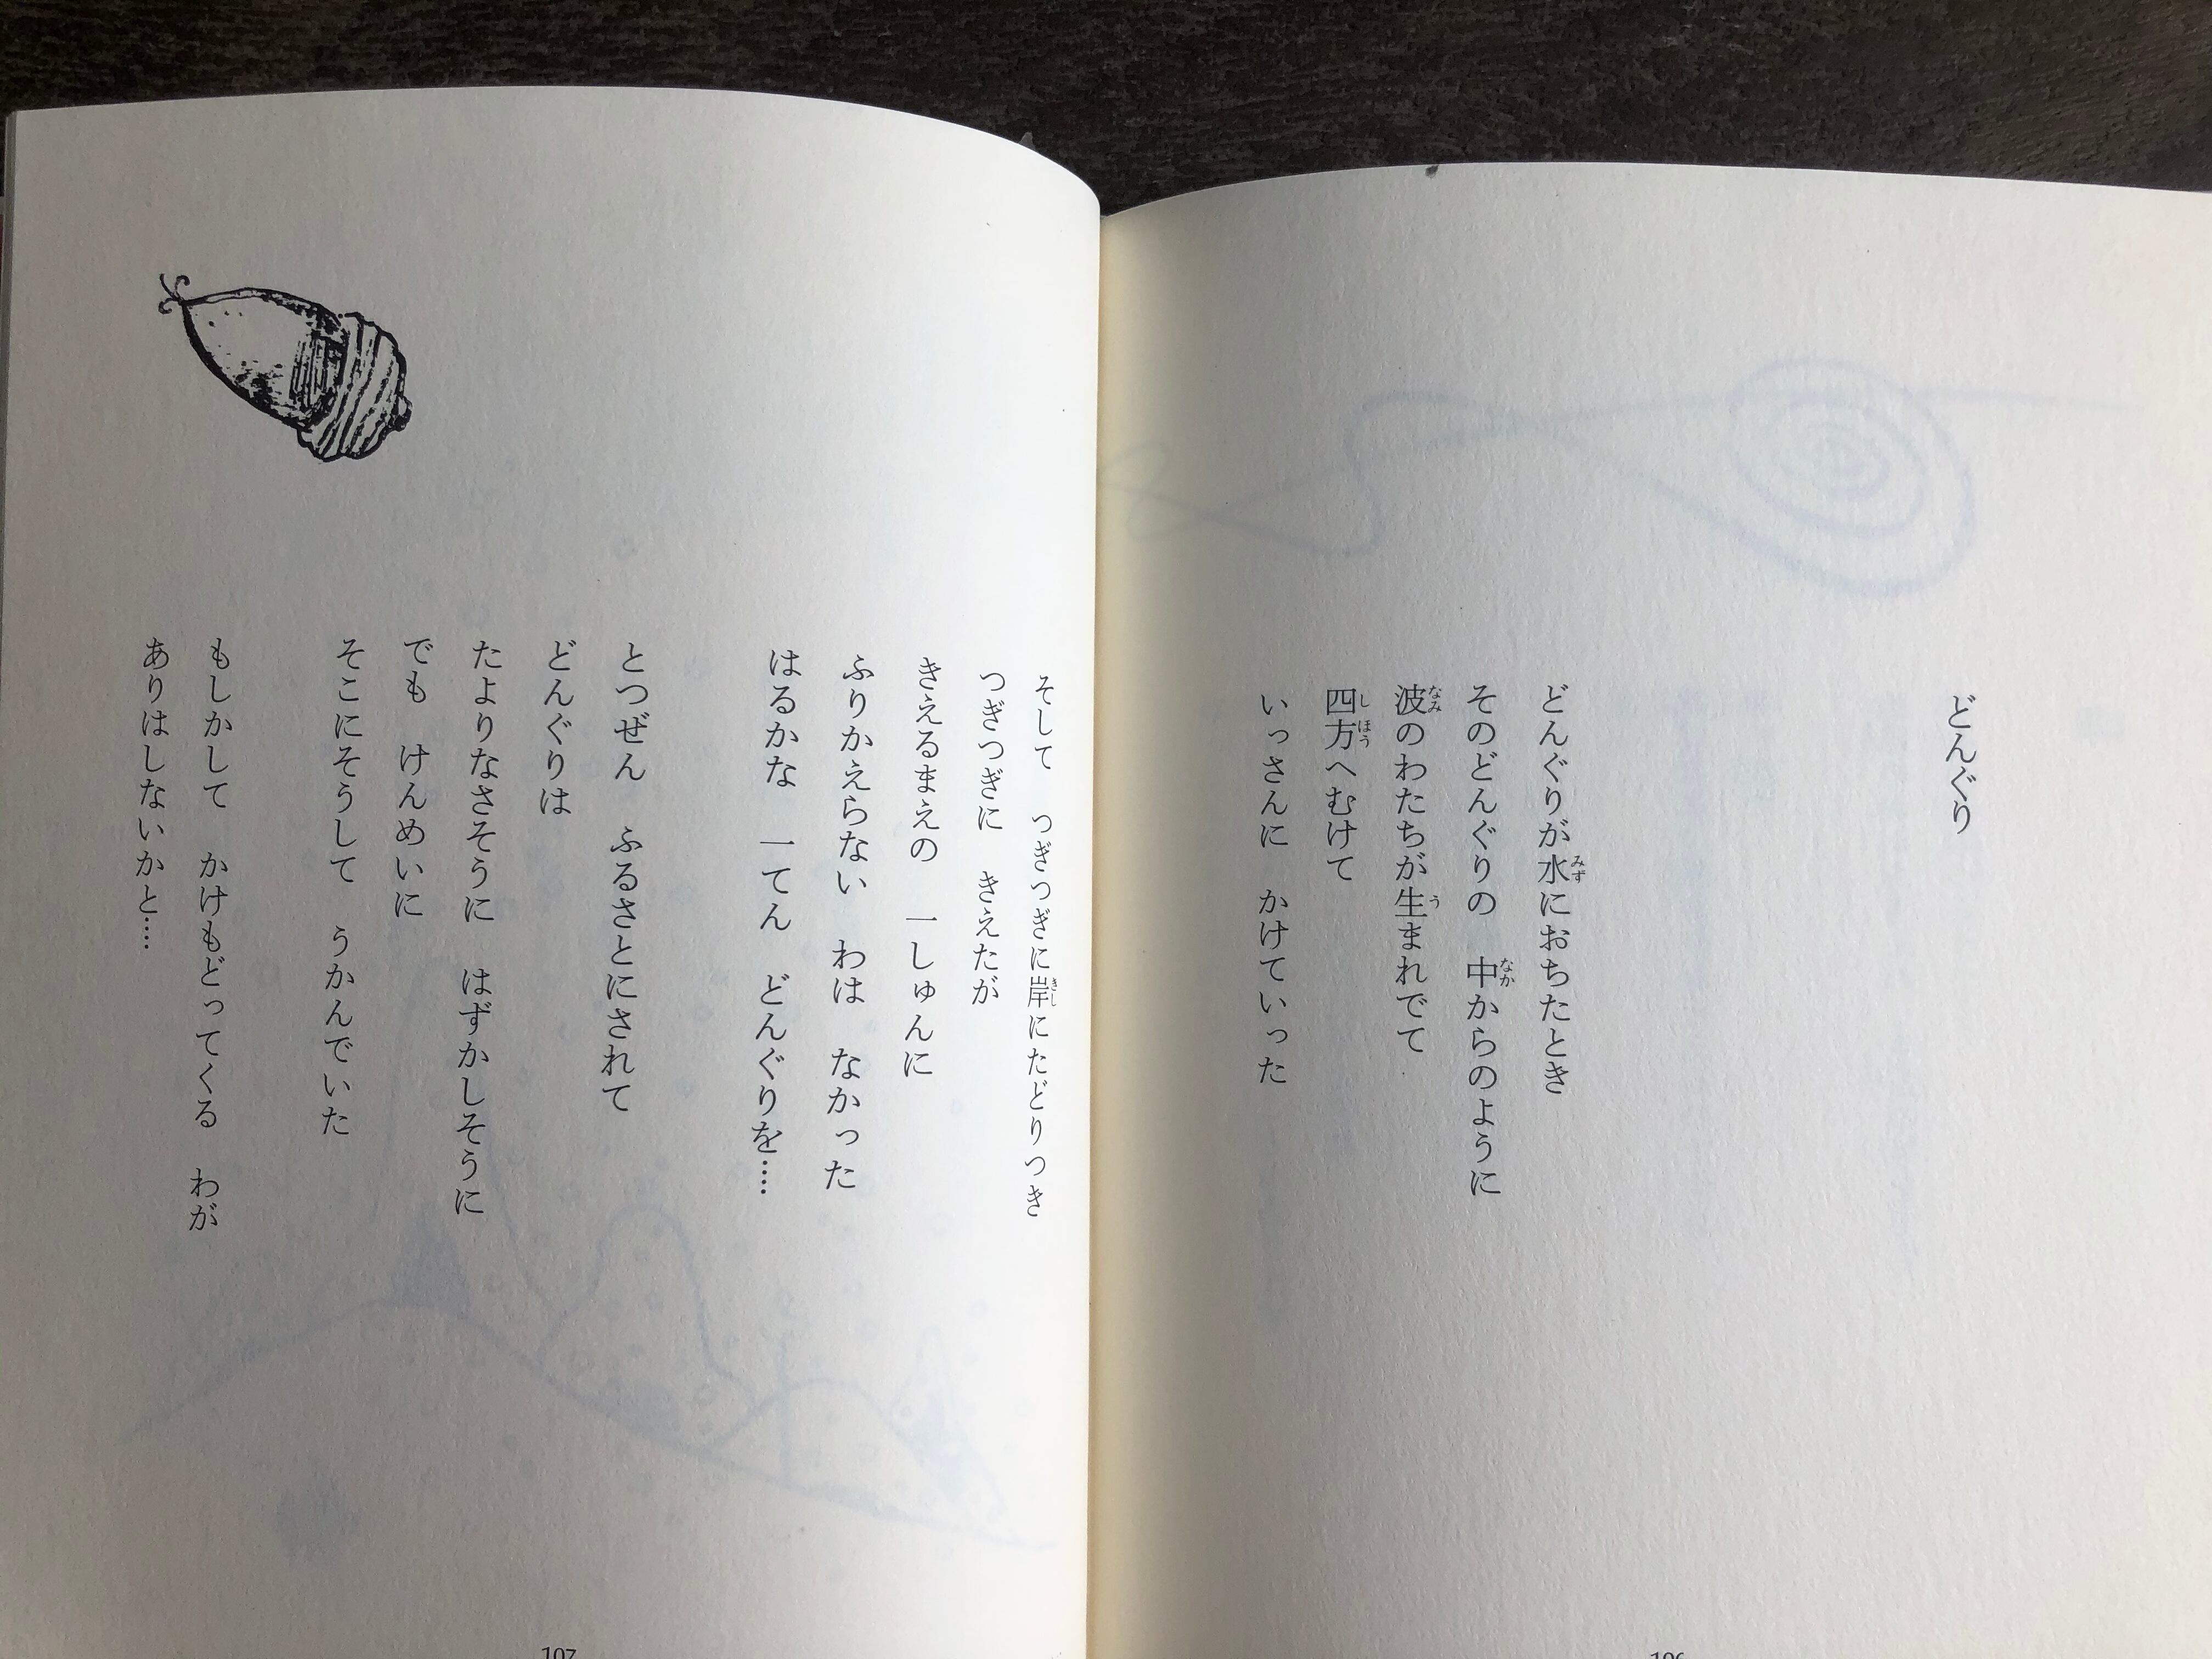 どんぐり
どんぐりが水におちたとき
そのどんぐりの　中からのように
波のわたちが生まれでて
四方へむけて
いっさんに　かけていった
そして　つぎつぎに岸にたどりつき
つぎつぎに　きえたが
きえるまえの　一しゅんに
ふりかえらない　わは　なかった
はるかな　一てん　どんぐりを……
とつぜん　ふるさとにされて
どんぐりは
たよりなさそうに　はずかしそうに
でも　けんめいに
そこにそうして　うかんでいた
もしかして　かけもどってくる　わが
ありはしないかと……
106
107